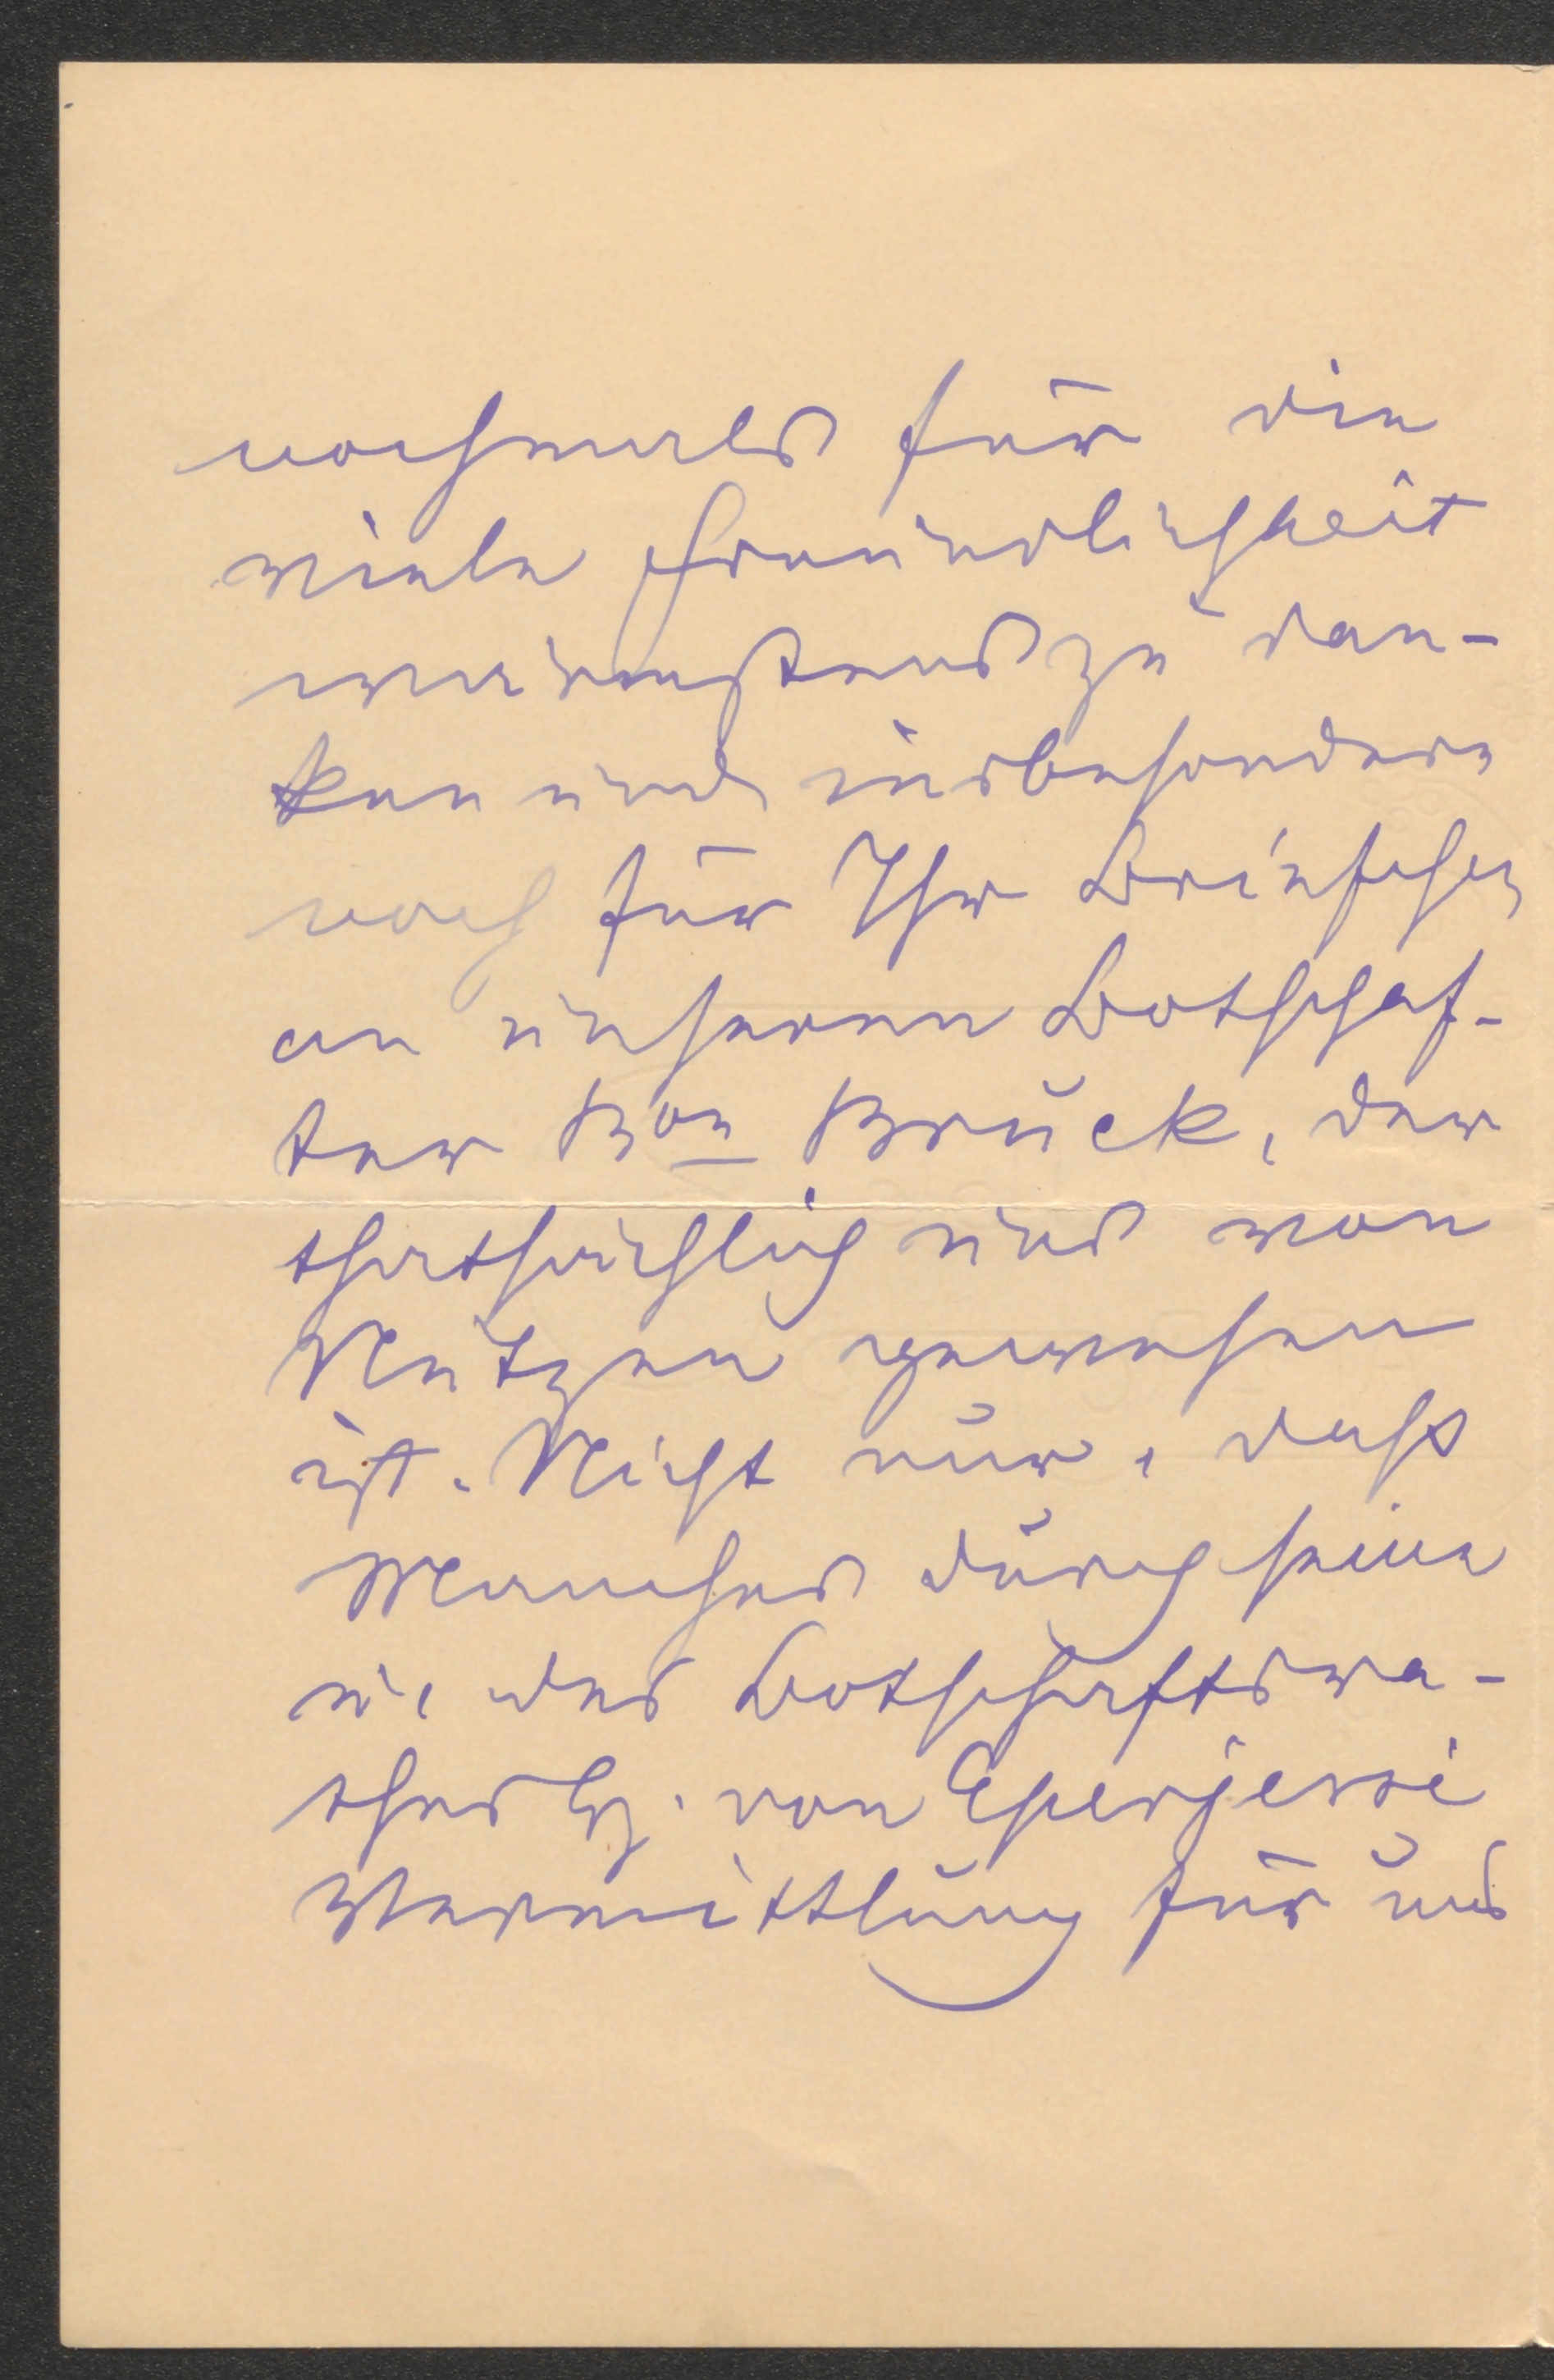 nochmals für die
viele Freundlichkeit
wärmstens zu dan-
ken und insbesondere
noch für Ihr Briefchen
an unseren Botschaf-
ter Bon Bruck, der
thatsächlich uns von
Nutzen gewesen
ist. Nicht nur, daß
Manches durch seine
u. des Botschaftsra-
thes H. von Eperjessi
Vermittlung für uns